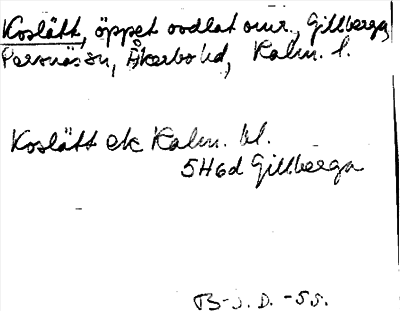 Koslätt, öppet odlat omr., Gillberga,
Persnäs sn, Åkerbo hd, Kalm. l.
Koslätt ek Kalm. bl.
5H6d Gillberga
B-J. D. -55.